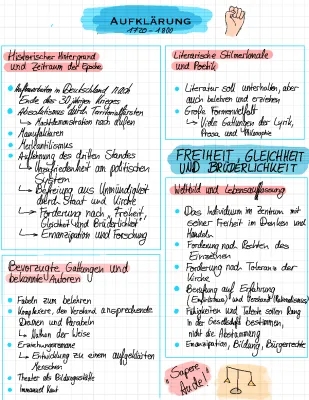 AUFKLÄRUNG
1720 - 1800
Historischer Hintergrund
und Zeitraum der Epoche
in Deutschland nach
Ende des 30 jährigen Krieges
Absolutismus durch Territorialfürsten
→ Machtdemonstration nach außen
Manufakturen
Merkantilismus
des dritten Standes
→ Unzufriedenheit am politischen
System
→ Befreiung aus Unmündigkeit
durch Staat und Kirche
→ Forderung nach "Freiheit,
Gleichheit und Brüderlichkeit
→ Emanzipation und Forschung
Bevorzugte Gattungen und
bekannte Autoren
Fabeln zum belehren
Komplexere, den Verstand ansprechende
Dramen und Parabeln
→ Nathan der Weise
Erziehungsromane
→ Entwicklung zu einem aufgeklärten
Menschen
Theater als Bildungsstätte
Immanuel Kant
Literarische Stilmerkmale
und Poetik
Literatur soll unterhalten, aber
auch belehren und erziehen
Große Formenvielfalt
→ Viele Gattungen der Lyrik,
Prosa und Philosophie
FREIHEIT, GLEICHHEIT
UND BRÜDERLICHKEIT
Weltbild und Lebensauffassung
Das Individuum im Zentrum mit
seiner Freiheit im Denken und
Handeln
Forderung nach Rechten des
Einzelnen
Forderung nach Toleranz der
Kirche
Berufung auf Erfahrung
(Empirismus) und Verstand (Rationalismus)
Fähigkeiten und Talente sollen Rang
in der Gesellschaft bestimmen,
nicht die Abstammung
Emanzipation, Bildung, Bürgerrechte
"Sapere
Aude!"